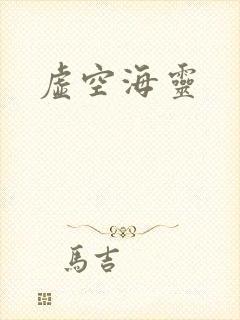 虛空海靈
馬吉